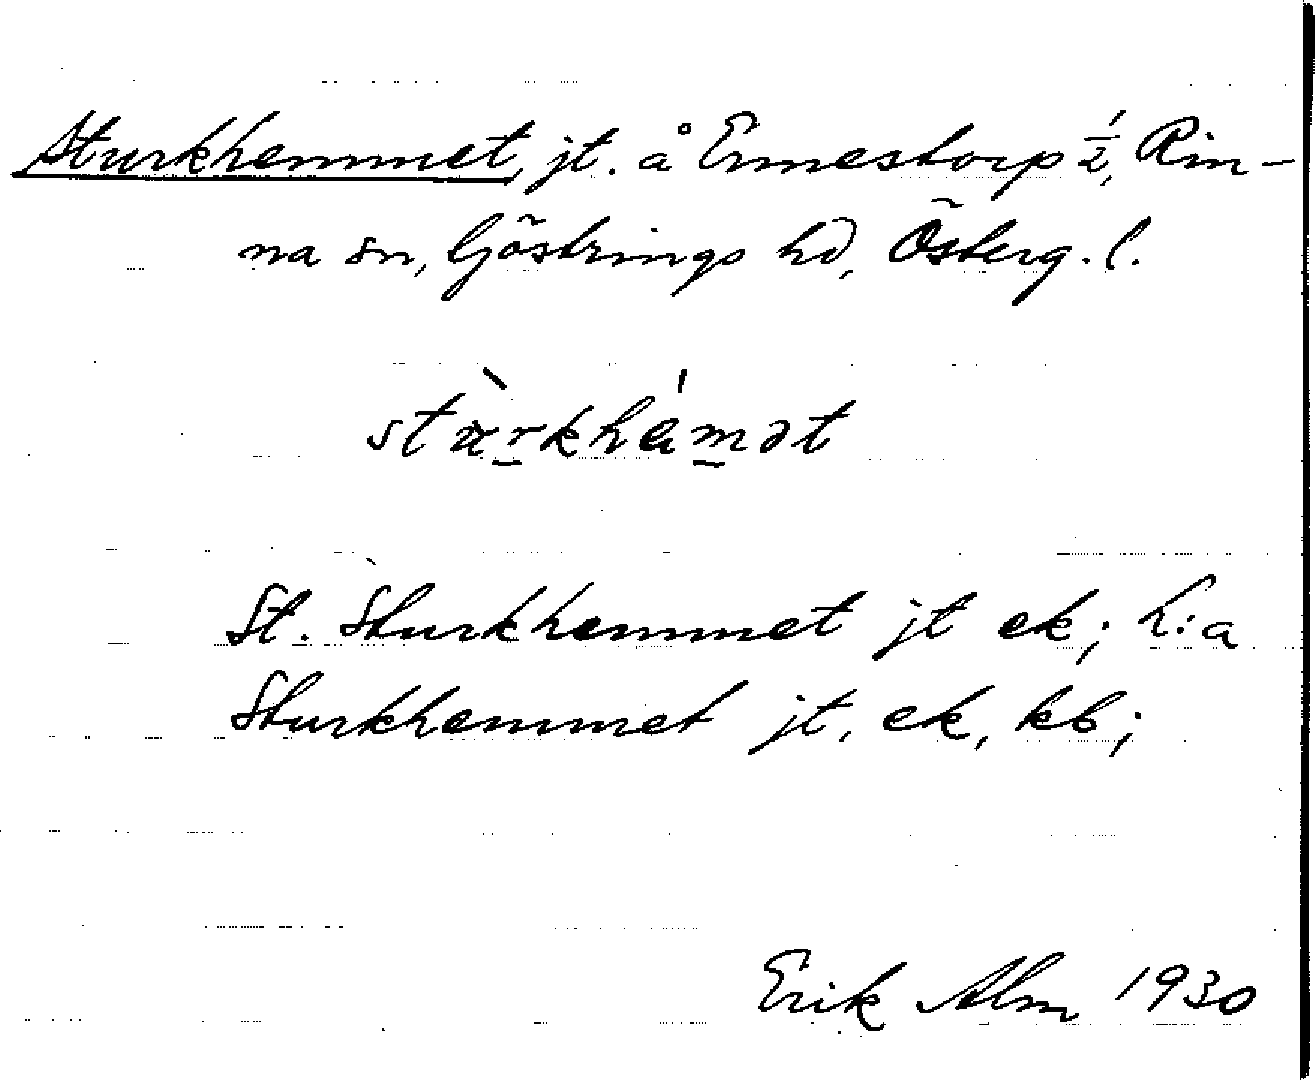 Sturkhemmet, jt. å Ennestorp ½, Rin-
na sn, Göstrings hd, Österg. l.
stu̇̀rkhémət
St. Sturkhemmet jt ek; h:a
Sturkhemmet jt, ek, kb;
Erik Alm 1930